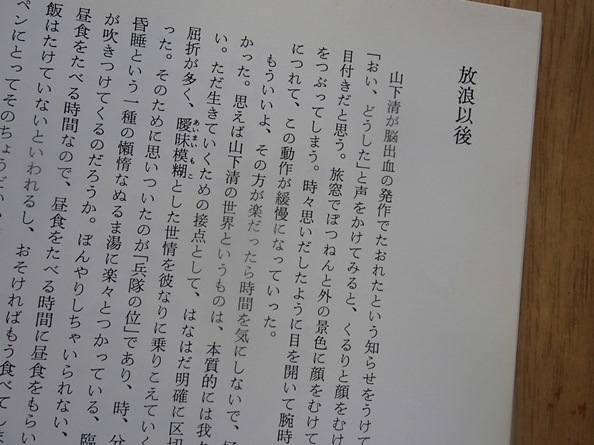 放浪以後
山下清が脳出血の発作でたおれたという知らせをうけて
「おい、どうした」と声をかけてみると、くるりと顔をむけ
目付きだと思う。旅窓でぽつねんと外の景色に顔をむけて
をつぶってしまう。時々思いだしたように目を開いて腕時
につれて、この動作が緩慢になっていった。
もういいよ、その方が楽だったら時間を気にしないで、
かった。思えば山下清の世界というものは、本質的には我
い。ただ生きていくための接点として、はなはだ明確に区切
屈折が多く、曖昧模糊とした世情を彼なりに乗りこえていく
あいまいもこ
った。そのために思いついたのが「兵隊の位」であり、時、分
昏睡という一種の懶惰なぬるま湯に楽々とつかっている、臨
が吹きつけてくるのだろうか。ぼんやりしちゃいられない、
昼食をたべる時間なので、昼食をたべる時間に昼食をもらい
飯はたけていないといわれるし、おそければもう食べてしま
ペンにとってそのちょうど